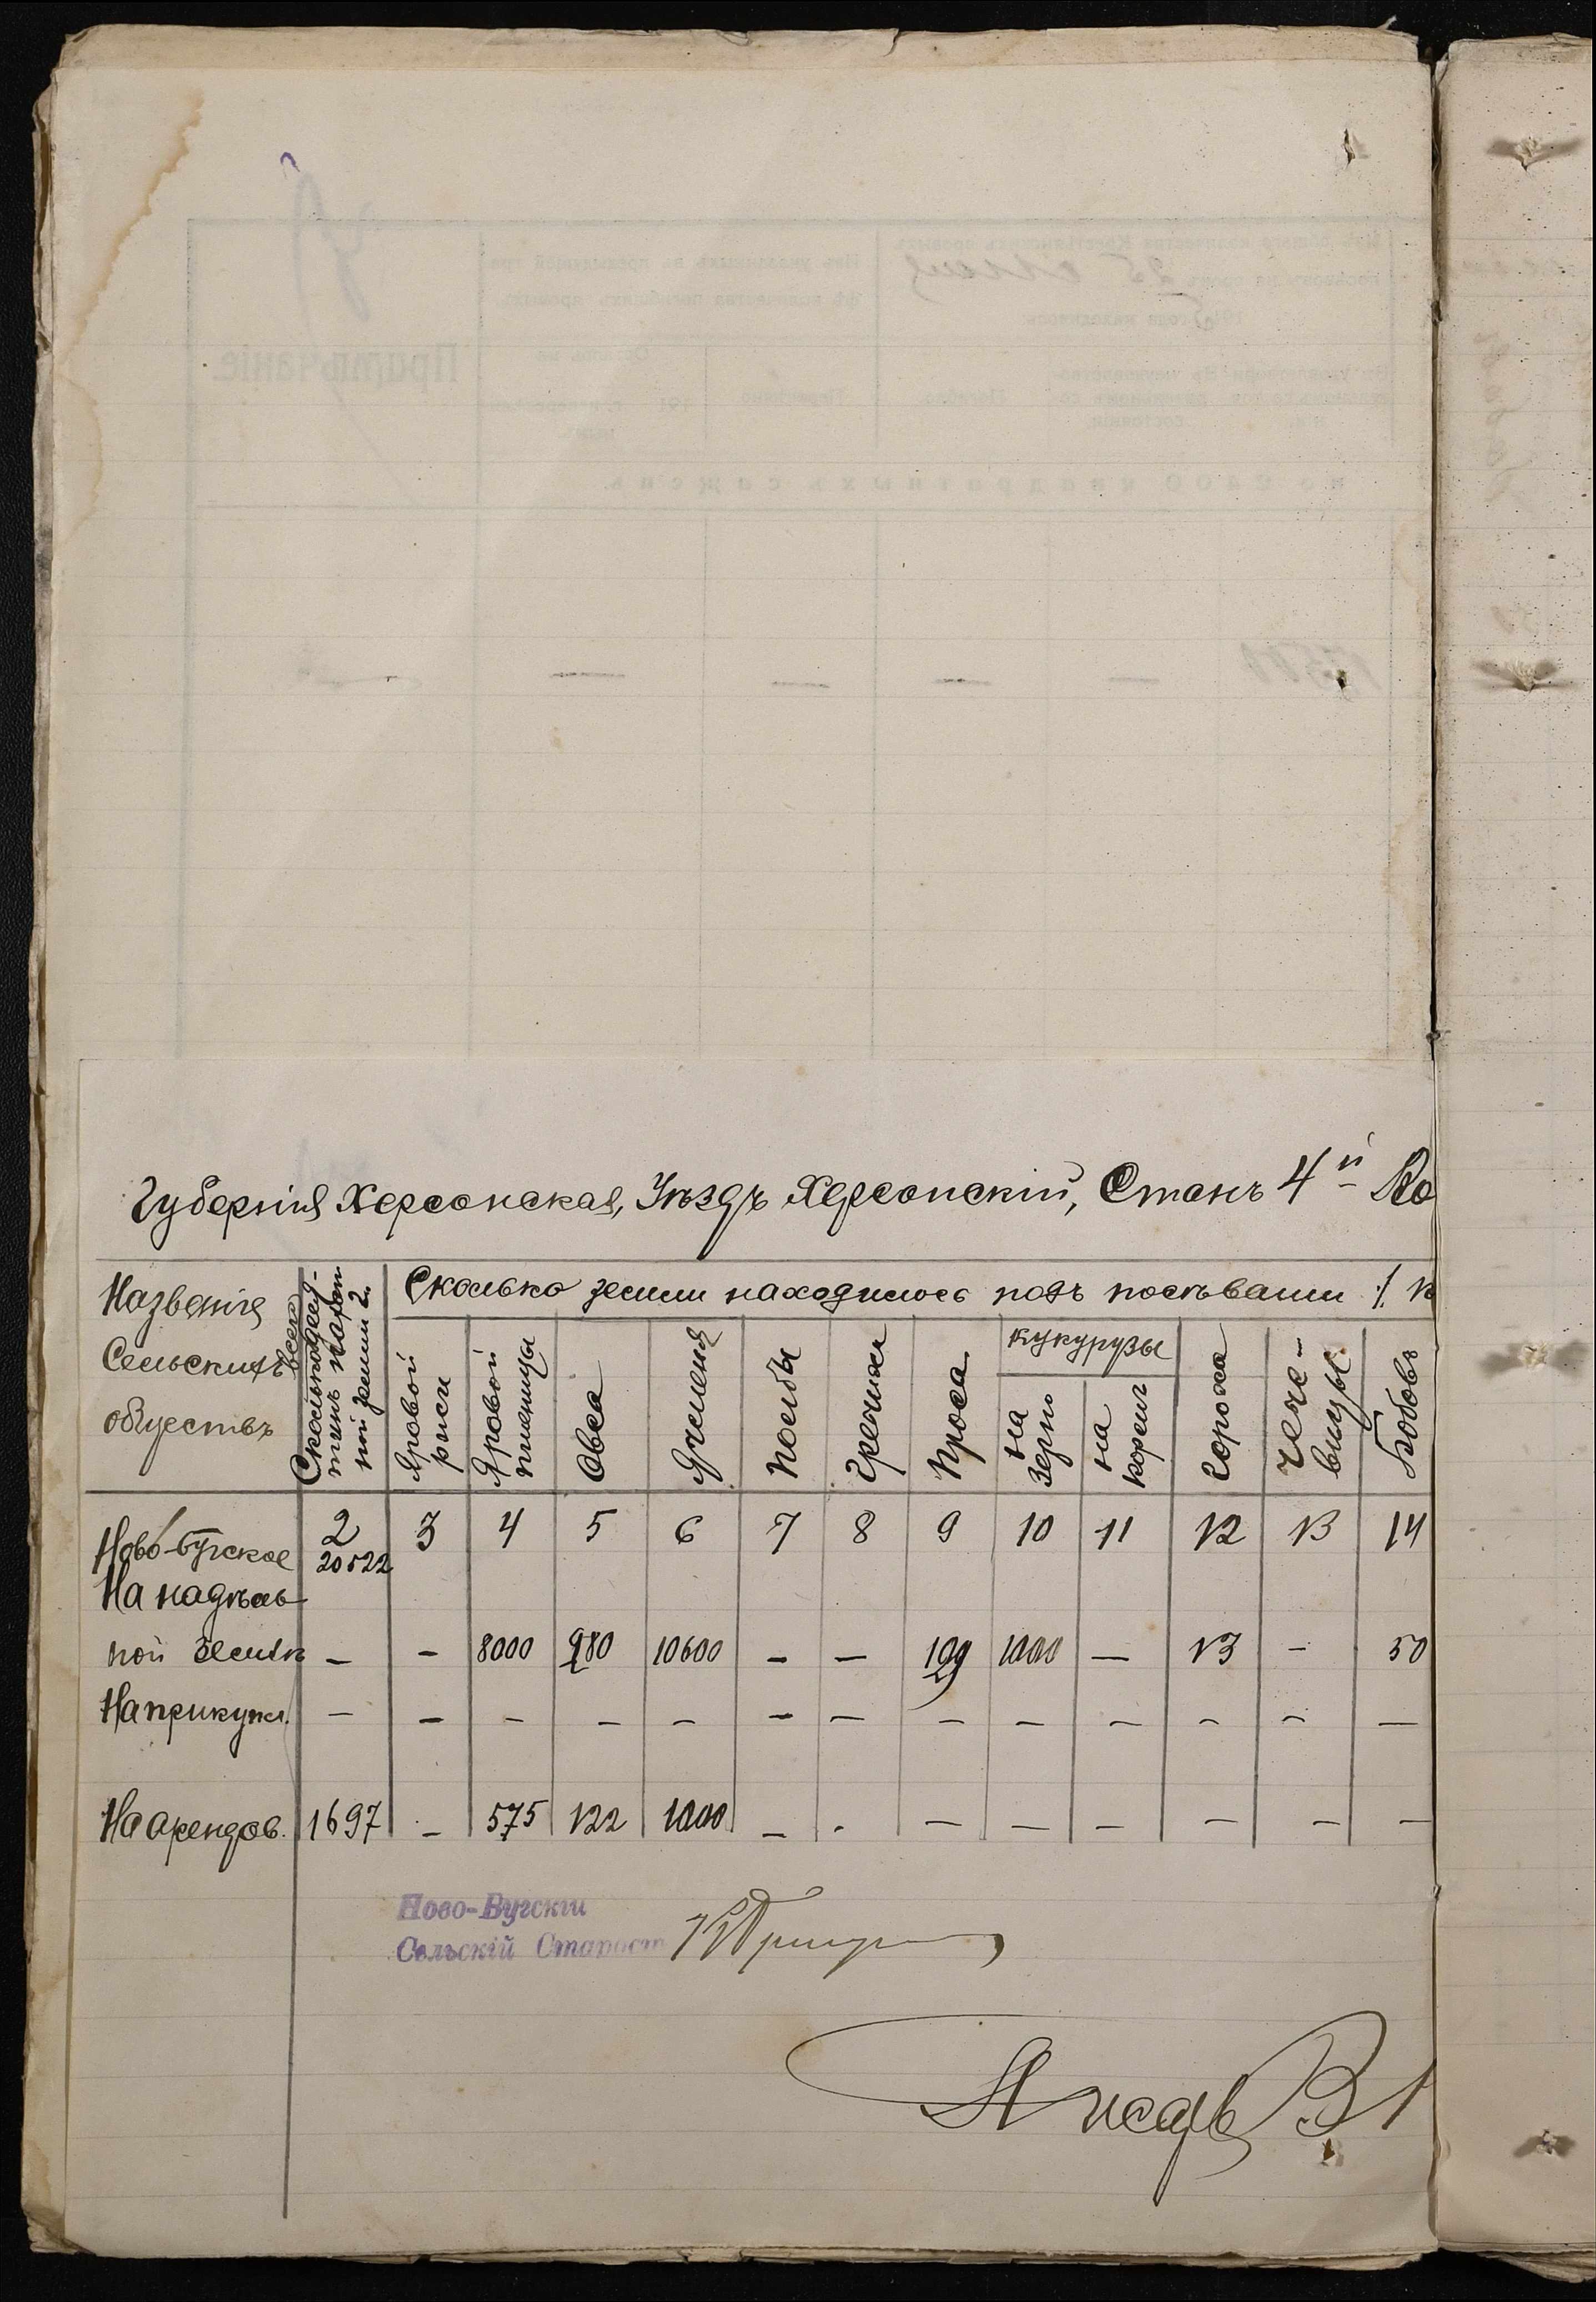 Губернія Херсонская, Уѣздъ Херсонскій, Станъ 4й
Названіе Сельскихъ обществъ
всего
Сколько земли находилось подъ посѣвами
Яровой ржи
Яровой пшеницы
Овса
Ячменя
Полбы
Гречихи
Проса
Кукурузы
на зерно
на кормъ
Гороха
Чече-
вицы
Бобовъ
2 3 4 5 6 7 8 9 10 11 12 13 14
Ново-Бугское 20522
На надѣль-
ной землѣ — — 8000 980 10600 — — 109 1000 — 13 — 50
На прикупл. — — — — — — — — — — — — —
На арендов. 1697 — 575 122 1000 — - — — — — — —
Ново-Бугскій
Сельскій Старост